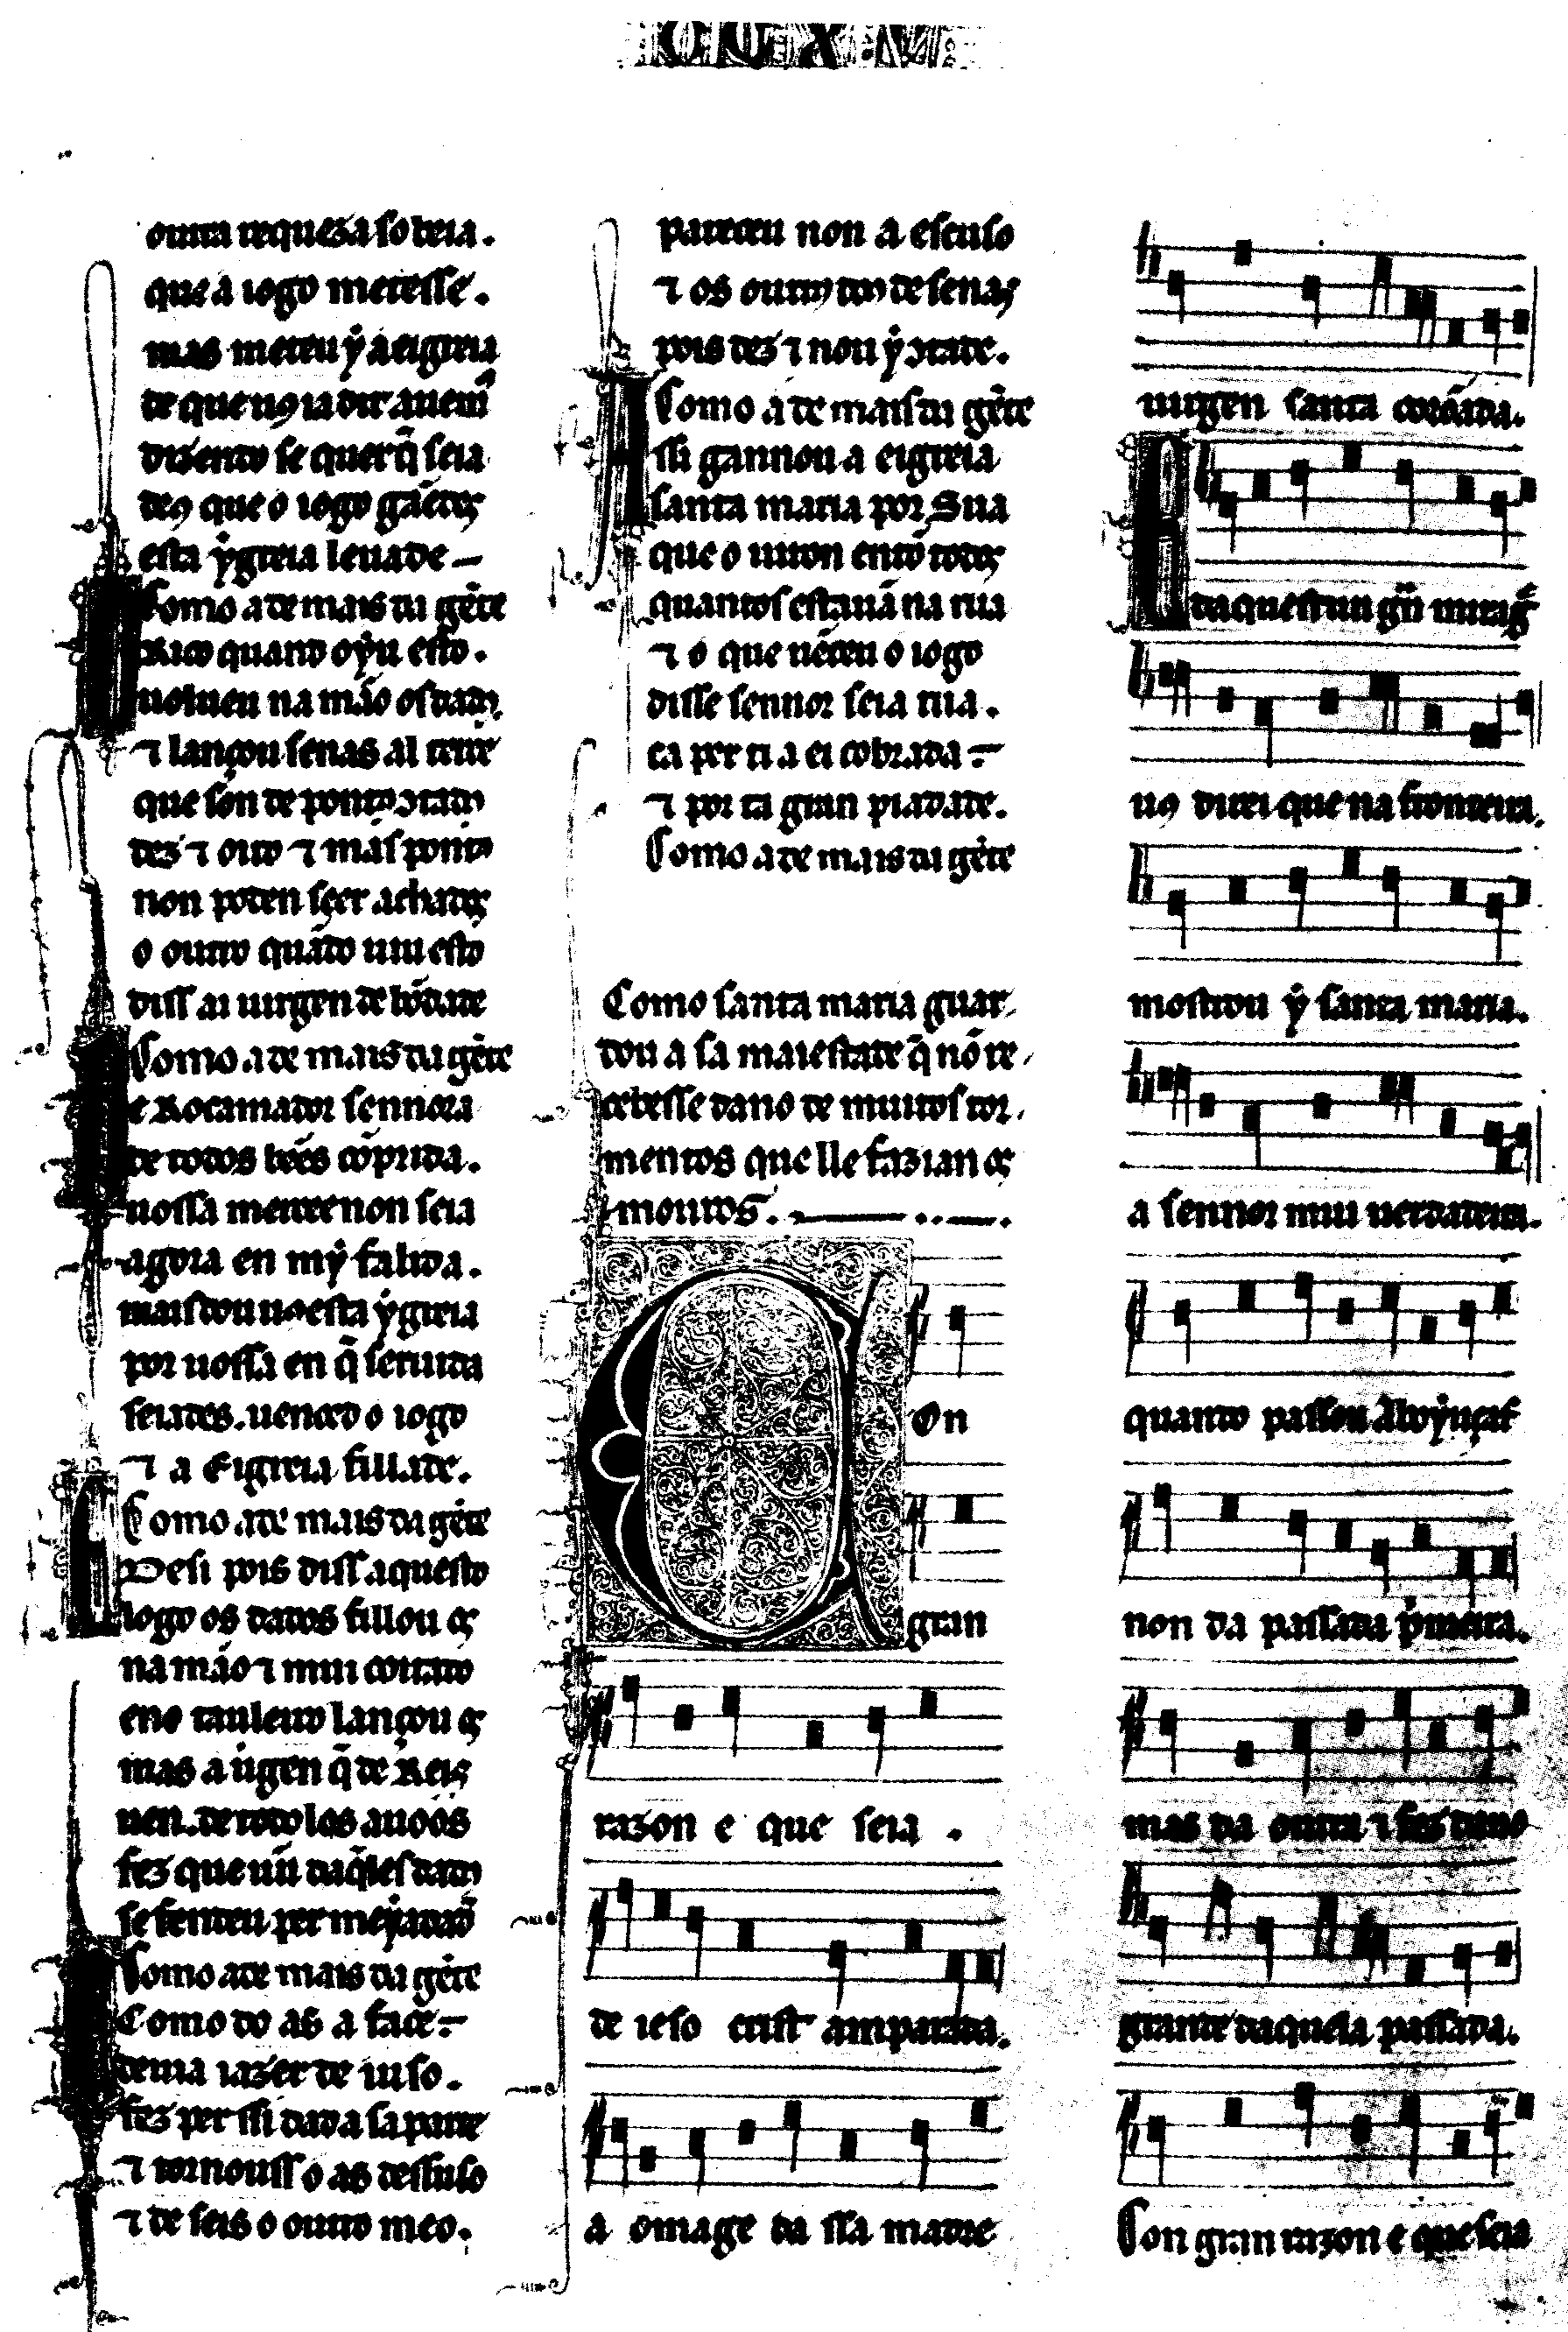 outra requeza soberia.
que a iogo metesse.
mas meteu ẏ a eigreia
de que uꝯ ia dit auem̃
dizendo se quer q̃ seia
deꝯ que o iogo gãedes
esta ẏgreia leuade —
Como a de mais da gẽte
Rico quand oẏu esto.
uolueu na mão os dados.
⁊ lançou senas al teste
que son de pontos ɔtados
dez ⁊ outo ⁊ mais pontos
non poden seer achados
o outro quãdo uiu esto
diss ai uirgen de bõdade
Como a de mais da gẽte
e Rocamador sennora
de todos bẽes cõprida.
uossa mercee non seia
agora en mỹ falida.
mais dou uꝯ esta ẏgreia
por uossa en q̃ seruida
seiades. uençedo o iogo
⁊ a Eigreia fillade.
Como a de mais da gẽte
Desi pois diss aquesto
logo os dados fillou os
na mão ⁊ mui coitado
eno tauleiro lançou os
mas a uirgen q̃ de Reis
uen. de todolos auoos
fez que uũ daq̃les dados
se fendeu per meẏadad
Como a de mais da gẽte
Como do as a face —
deuia iazer de iuso.
fez per ssi dada sa parte
⁊ tornouss o as dessuso
⁊ de seis o outro meo.
pareceu non a escuso
⁊ os outros dous de senas
pois dez ⁊ nou ẏ ɔtade.
Como a de mais da gẽte
ssi gannou a eigreia
santa maria por Sua
que o uiron entõ todos
quantos estauã na rua
⁊ o que uẽceu o iogo
disse sennor seia tua.
ca per ti a ei cobrada —
⁊ por ta gran piadade.
Como a de mais da gẽte
Como santa maria guar
dou a sa maiestade q̃ nõ re
cebesse dano de muitos tor
mentos que lle fazian os
mouros.
Con
gran
razon e que seia .
de ieso crist amparada.
a omage da ssa madre
uirgen santa corõada.
E daquest un grã mirag̃
uꝯ direi que na fronteira.
mostrou ẏ santa maria.
a sennor mui uerdadeira.
quando passou Aboẏuçaf
non da passada p̃meira.
mas da outra ⁊ fez dano
grande daquela passada.
Con gran razon e que seia